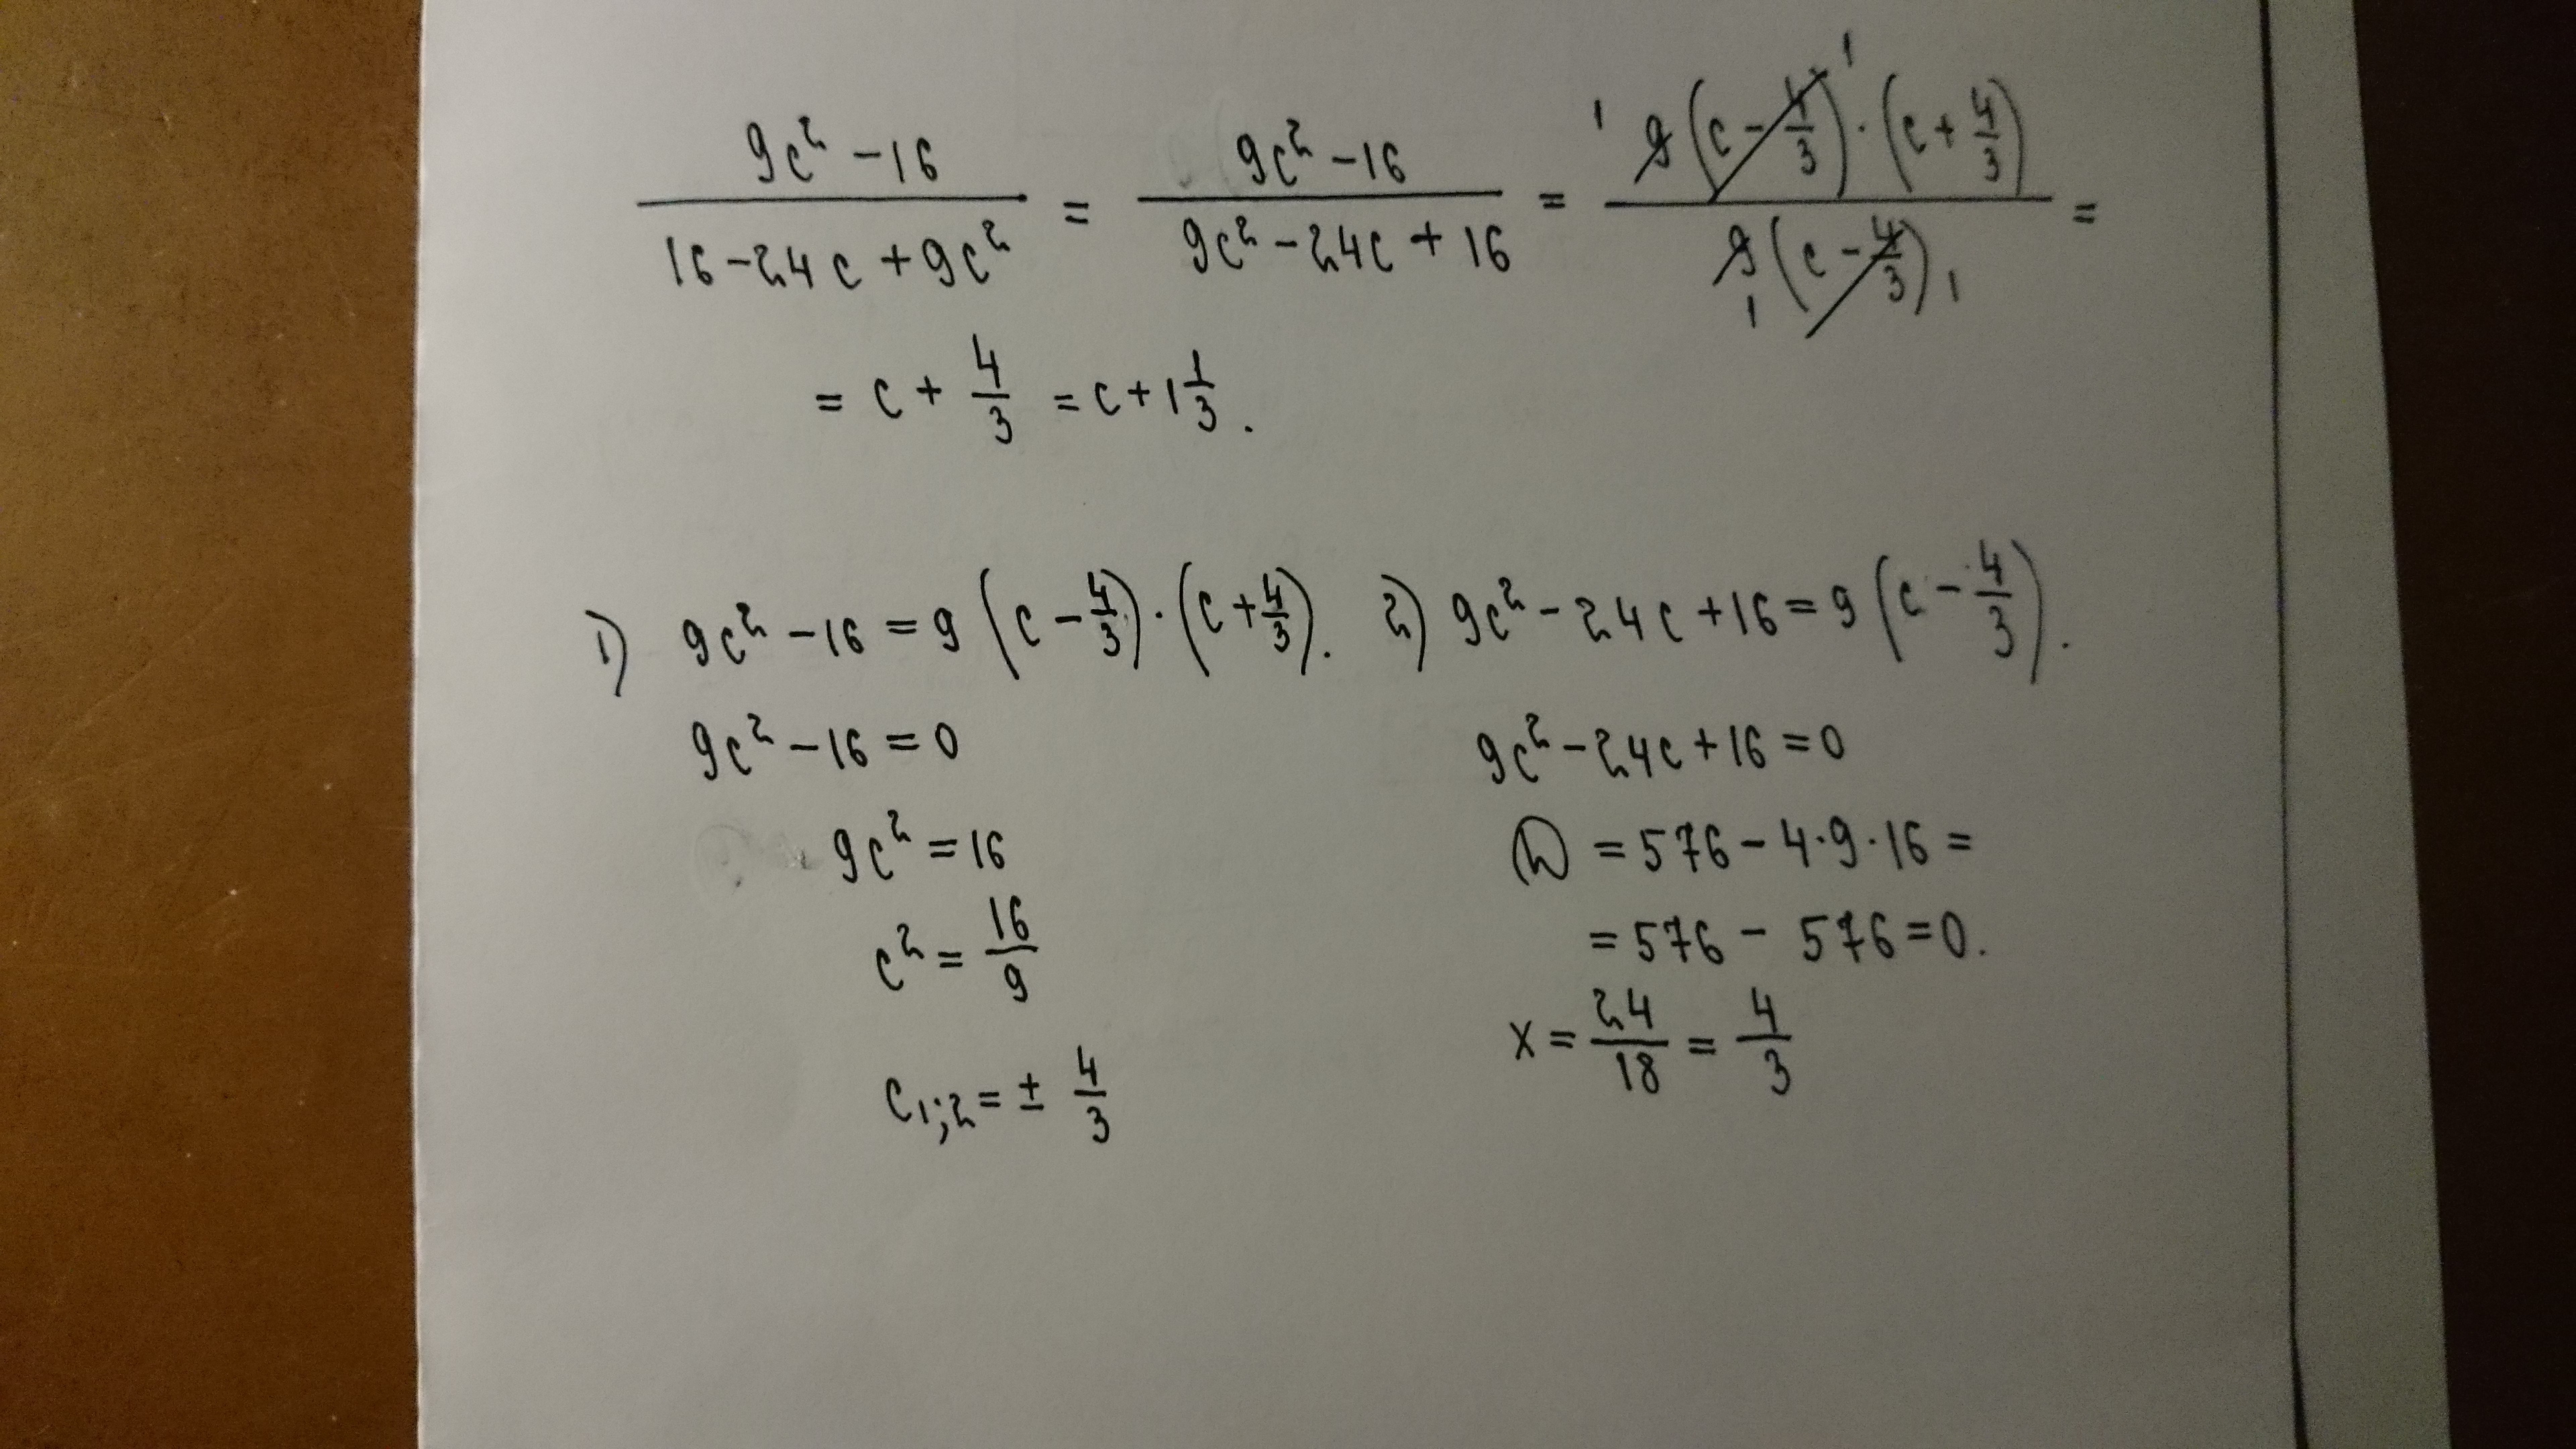 (9c² − 16)/(16 − 24c + 9c²) = (9c² − 16)/(9c² − 24c + 16) = (9(c − 4/3)·(c + 4/3))/(9(c − 4/3)) =
= c + 4/3 = c + 1 1/3.
1) 9c² − 16 = 9(c − 4/3)·(c + 4/3). 2) 9c² − 24c + 16 = 9(c − 4/3).
9c² − 16 = 0
9c² = 16
c² = 16/9
c₁;₂ = ± 4/3
9c² − 24c + 16 = 0
D = 576 − 4·9·16 =
= 576 − 576 = 0.
x = 24/18 = 4/3